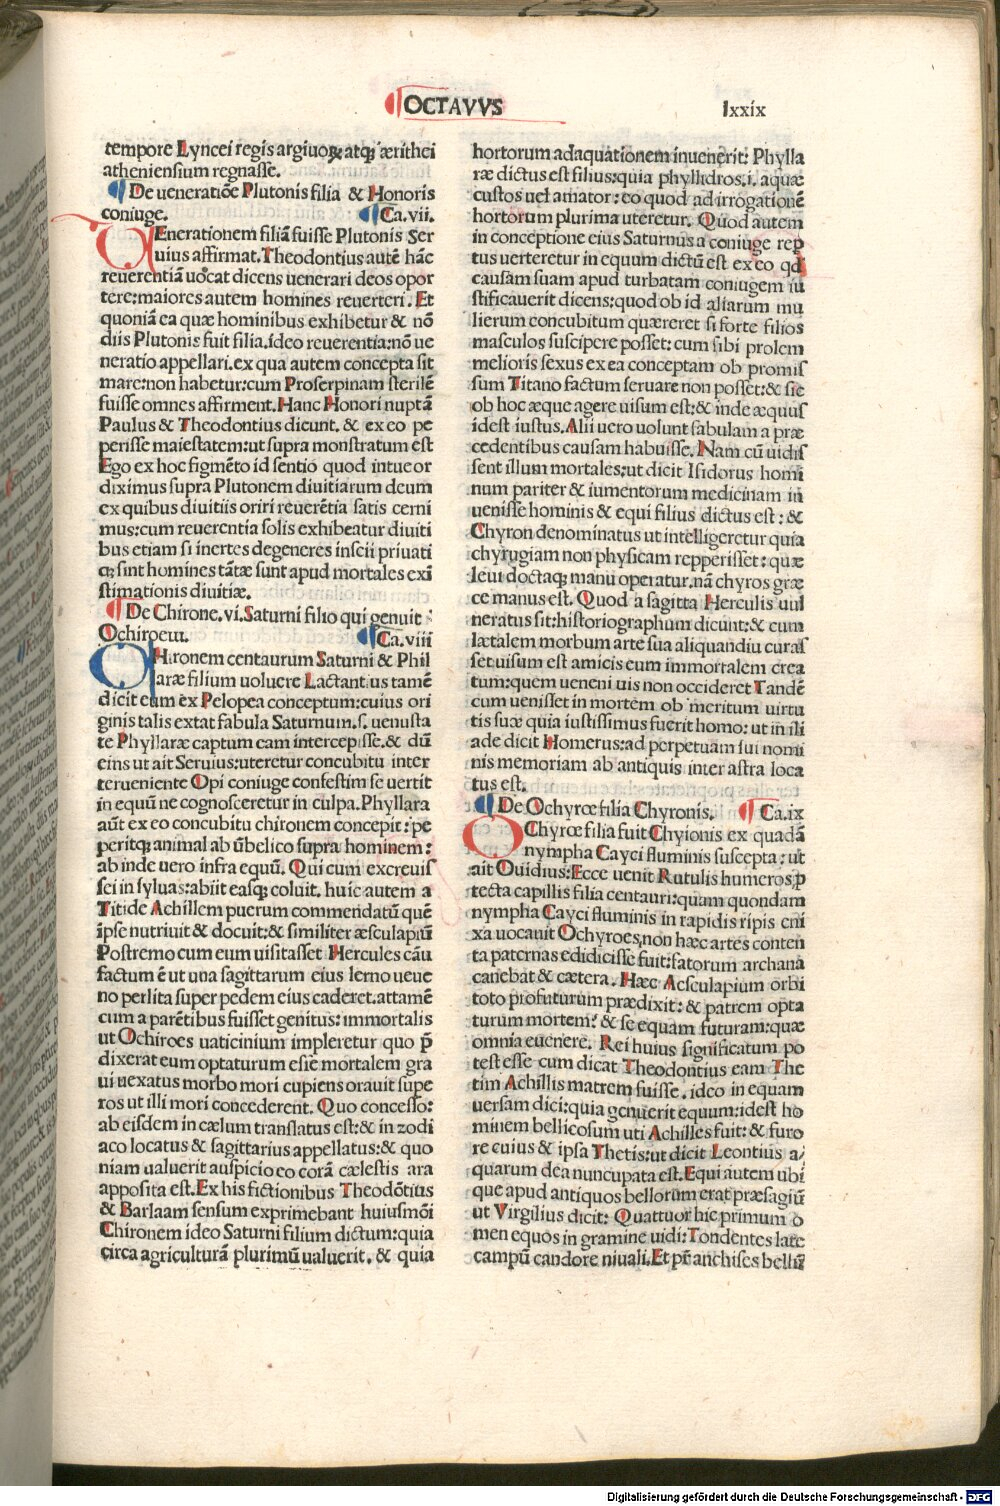 OCTAVVS
lxxix
tempore Lyncei regis argiuoꝝ atqꝫ ærithei
atheniensium regnasse.
De ueneratiōe Plutonis filia & Honoris
coniuge. Ca. vii.
VEnerationem filiā fuisse Plutonis Ser
uius affirmat. Theodontius autē hāc
reuerentiā uocat dicens uenerari deos opor
tere: maiores autem homines reuerteri. Et
quoniā ea quæ hominibus exhibetur & nō
diis Plutonis fuit filia, ideo reuerentia: nō ue
neratio appellari. ex qua autem concepta sit
mare: non habetur: cum Proserpinam sterilē
fuisse omnes affirment. Hanc Honori nuptā
Paulus & Theodontius dicunt. & ex eo pe
perisse maiestatem: ut supra monstratum est
Ego ex hoc figmēto id sentio quod intueor
diximus supra Plutonem diuitiarum deum
ex quibus diuitiis oriri reuerētia satis cerni
mus: cum reuerentia solis exhibeatur diuiti
bus etiam si inertes degeneres inscii priuati
qꝫ sint homines tātæ sunt apud mortales exi
stimationis diuitiæ.
De Chirone. vi. Saturni filio qui genuit
Ochiroeut. Ca. viii
CHironem centaurum Saturni & Phil
laræ filium uoluere Lactantius tamē
dicit eum ex Pelopea conceptum: cuius ori
ginis talis extat fabula Saturnum. s. uenusta
te Phyllaræ captum eam intercepisse. & dū
eius ut ait Seruius: uteretur concubitu inter
terueniente Opi coniuge confestim se uertit
in equū ne cognosceretur in culpa. Phyllara
aūt ex eo concubitu chironem concepit: pe
peritqꝫ animal ab ūbelico supra hominem:
ab inde uero infra equū. Qui cum excreuis
sei in syluas: abiit easqꝫ coluit. huic autem a
Titide Achillem puerum commendatū quē
ipse nutriuit & docuit: & similiter æsculapiū
Postremo cum eum uisitasset Hercules cāu
factum ē ut una sagittarum eius lerno uene
no perlita super pedem eius caderet. attamē
cum a parētibus fuisset genitus: immortalis
ut Ochiroes uaticinium impleretur quo p̄
dixerat eum optaturum esse mortalem gra
ui uexatus morbo mori cupiens orauit supe
ros ut illi mori concederent. Quo concesso:
ab eisdem in cælum translatus est: & in zodi
aco locatus & sagittarius appellatus: & quo
niam ualuerit auspicio eo corā cælestis ara
apposita est. Ex his fictionibus Theodōtius
& Barlaam sensum exprimebant huiusmōi
Chironem ideo Saturni filium dictum: quia
circa agriculturā plurimū ualuerit. & quia
hortorum adaquationem inuenerit: Phylla
ræ dictus est filius: quia phyllidros. i. aquæ
custos uel amator: eo quod ad irrogationē
hortorum plurima uteretur. Quod autem
in conceptione eius Saturnus a coniuge rep
tus uerteretur in equum dictū est ex eo qd
causam suam apud turbatam coniugem iu
stificauerit dicens: quod ob id aliarum mu
lierum concubitum quæreret si forte filios
masculos suscipere posset: cum sibi prolem
melioris sexus ex ea conceptam ob promis
sum Titano factum seruare non posset: & sic
ob hoc æque agere uisum est: & inde æquus
idest iustus. Alii uero uolunt fabulam a præ
cedentibus causam habuisse. Nam cū uidis
sent illum mortales: ut dicit Isidorus homi
num pariter & iumentorum medicinam in
uenisse hominis & equi filius dictus est: &
Chyron denominatus ut intelligeretur quia
chyrugiam non physicam repperisset: quæ
leui doctaqꝫ manu operatur. nā chyros græ
ce manus est. Quod a sagitta Herculis uul
neratus sit: historiographum dicunt: & cum
lætalem morbum arte sua aliquandiu curas
set uisum est amicis eum immortalem crea
tum: quem ueneni uis non occideret Tandē
cum uenisset in mortem ob meritum uirtu
tis suæ quia iustissimus fuerit homo: ut in ili
ade dicit Homerus: ad perpetuam sui nomi
nis memoriam ab antiquis inter astra loca
tus est.
De Ochyrœ filia Chyronis. Ca. ix
OChyrœ filia fuit Chyionis ex quadā
nympha Cayci fluminis suscepta: ut
ait Ouidius: Ecce uenit Rutulis humeros p̄
tecta capillis filia centauri: quam quondam
nympha Cayci fluminis in rapidis ripis eni
xa uocauit Ochyroes, non hæc artes conten
ta paternas edidicisse fuit: fatorum archana
canebat & cætera. Hæc Aesculapium orbi
toto profuturum prædixit: & patrem opta
turum mortem: & se equam futuram: quæ
omnia euenere. Rei huius significatum po
test esse cum dicat Theodontius eam The
tim Achillis matrem fuisse. ideo in equam
uersam dici: quia genuerit equum: idest ho
minem bellicosum uti Achilles fuit: & furo
re cuius & ipsa Thetis: ut dicit Leontius a/
quarum dea nuncupata est. Equi autem ubi
que apud antiquos bellorum erat præsagiū
ut Virgilius dicit: Quattuor hic primum o
men equos in gramine uidi: Tondentes late
campū candore niuali. Et pr̄ anchises bellū
Digitalisierung gefördert durch die Deutsche Forschungsgemeinschaft - DFG